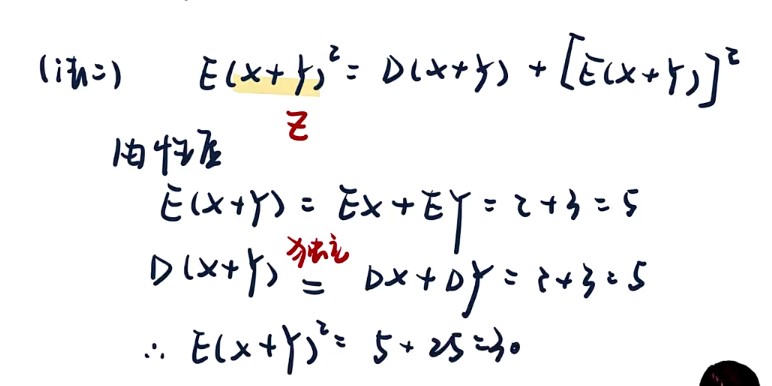 (法二) E(X+Y)² = D(X+Y) + [E(X+Y)]²
Z
由性质
E(X+Y) = EX + EY = 2+3 = 5
D(X+Y) 独立 = DX + DY = 2+3 = 5
∴ E(X+Y)² = 5+25=30